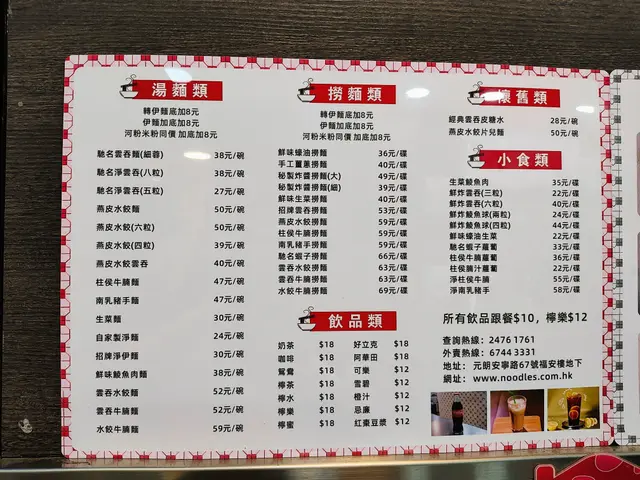 湯麵類
轉伊麵加底加8元
伊麵加底加8元
河粉米粉同價 加底加8元
馳名雲吞麵(細蓉) 38元/碗
馳名淨雲吞(八粒) 38元/碗
馳名淨雲吞(五粒) 27元/碗
燕皮水餃麵 50元/碗
燕皮水餃(六粒) 50元/碗
燕皮水餃(四粒) 39元/碗
燕皮水餃雲吞 40元/碗
柱侯牛腩麵 47元/碗
南乳豬手麵 47元/碗
生菜麵 30元/碗
自家製淨麵 24元/碗
招牌淨伊麵 30元/碗
鮮味鯪魚肉麵 38元/碗
雲吞水餃麵 52元/碗
雲吞牛腩麵 52元/碗
水餃牛腩麵 59元/碗
撈麵類
轉伊麵加底加8元
伊麵加底加8元
河粉米粉同價 加底加8元
鮮味蠔油撈麵 36元/碟
手工薑蔥撈麵 40元/碟
秘製炸醬撈麵(大) 49元/碟
秘製炸醬撈麵(細) 39元/碟
鮮味生菜撈麵 40元/碟
招牌雲吞撈麵 53元/碟
燕皮水餃撈麵 59元/碟
柱侯牛腩撈麵 59元/碟
南乳豬手撈麵 59元/碟
馳名蝦子撈麵 66元/碟
雲吞水餃撈麵 63元/碟
雲吞牛腩撈麵 63元/碟
水餃牛腩撈麵 69元/碟
飲品類
奶茶 $18 好立克 $18
咖啡 $18 阿華田 $18
鴛鴦 $18 可樂 $12
檸茶 $18 雪碧 $12
檸水 $18 橙汁 $12
檸樂 $18 忌廉 $12
檸蜜 $18 紅棗豆漿 $12
懷舊類
經典雲吞皮糖水 28元/碗
燕皮水餃片兒麵 50元/碗
小食類
生菜鯪魚肉 35元/碟
鮮炸雲吞(三粒) 22元/碟
鮮炸雲吞(六粒) 40元/碟
鮮炸鯪魚球(兩粒) 24元/碟
鮮炸鯪魚球(四粒) 44元/碟
鮮味蠔油生菜 22元/碟
馳名蝦子蘿蔔 33元/碟
柱侯牛腩蘿蔔 36元/碟
柱侯腩汁蘿蔔 22元/碟
淨柱侯牛腩 55元/碟
淨南乳豬手 58元/碟
所有飲品跟餐$10，檸樂$12
查詢熱線：2476 1761
外賣熱線：6744 3331
地址：元朗安寧路67號福安樓地下
網址：www.noodles.com.hk